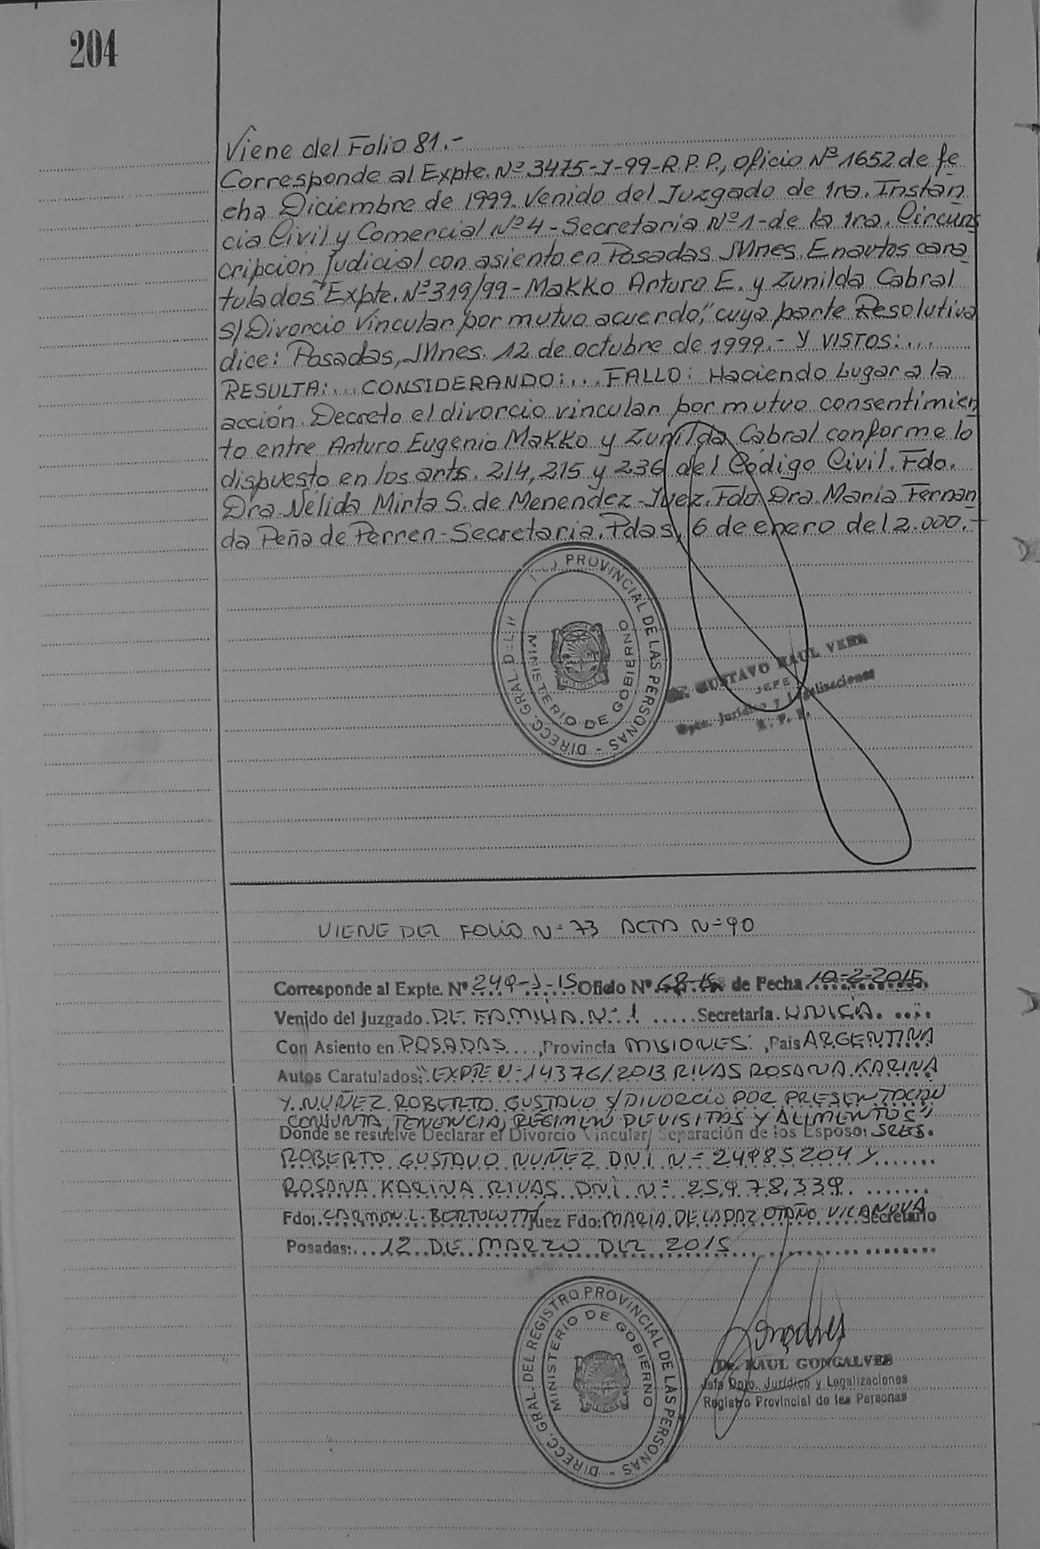 204
Viene del Folio 81.-
Corresponde al Expte. Nº 3475-J-99-R.P.P., Oficio Nº 1652 de fe
cha Diciembre de 1999. Venido del Juzgado de 1ra. Instan
cia Civil y Comercial Nº4-Secretaria Nº1-de la 1ra. Circuns
cripcion Judicial con asiento en Posadas Mnes. En autos cara
tulados "Expte. Nº319/99-Makko Arturo E. y Zunilda Cabral
S/ Divorcio Vincular por mutuo acuerdo," cuya parte Resolutiva
dice: Posadas, Mnes. 12 de octubre de 1999.- Y VISTOS:...
RESULTA:... CONSIDERANDO:... FALLO: Haciendo Lugar a la
acción. Decreto el divorcio vincular por mutuo consentimien
to entre Arturo Eugenio Makko y Zunilda Cabral conforme lo
dispuesto en los arts. 214, 215 y 236 del Código Civil. Fdo.
Dra Nélida Mirta S. de Menendez-Juez. Fdo. Dra. María Fernan
da Peña de Perren-Secretaria. Pdas, 6 de enero del 2.000.-
PROVINCIAL DE LAS PERSONAS - DIRECC. GRAL. DEL R
MINISTERIO DE GOBIERNO
GUSTAVO RAUL VERA
JEFE
Dpto. Jurídico y Legalizaciones
R. P. P.
VIENE DEL FOLIO Nº 73 ACTA Nº 90
Corresponde al Expte. Nº 249-J-15 Oficio Nº 68-15 de Fecha 10-2-2015
Venido del Juzgado DE FAMILIA Nº 1 ..... Secretaría UNICA.....
Con Asiento en POSADAS...., Provincia MISIONES, País ARGENTINA
Autos Caratulados: "EXPTE Nº 14376/2013 RIVAS ROSANA KARINA
Y NUÑEZ ROBERTO GUSTAVO S/ DIVORCIO POR PRESENTACION
CONJUNTA, TENENCIA, REGIMEN DE VISITAS Y ALIMENTOS";
Donde se resuelve Declarar el Divorcio Vincular/ Separación de los Esposo: SRES.
ROBERTO GUSTAVO NUÑEZ DNI Nº 24985204 Y.......
ROSANA KARINA RIVAS DNI Nº 25.978.339.......
Fdo: CARMEN L. BERTOLOTTI Juez Fdo: MARIA DE LA PAZ OTAÑO VILANOVA Secretario
Posadas:... 12 DE MARZO DEL 2015..................
DIRECC. GRAL. DEL REGISTRO PROVINCIAL DE LAS PERSONAS
MINISTERIO DE GOBIERNO
Dr. RAUL GONCALVES
Jefe Dpto. Jurídico y Legalizaciones
Registro Provincial de las Personas